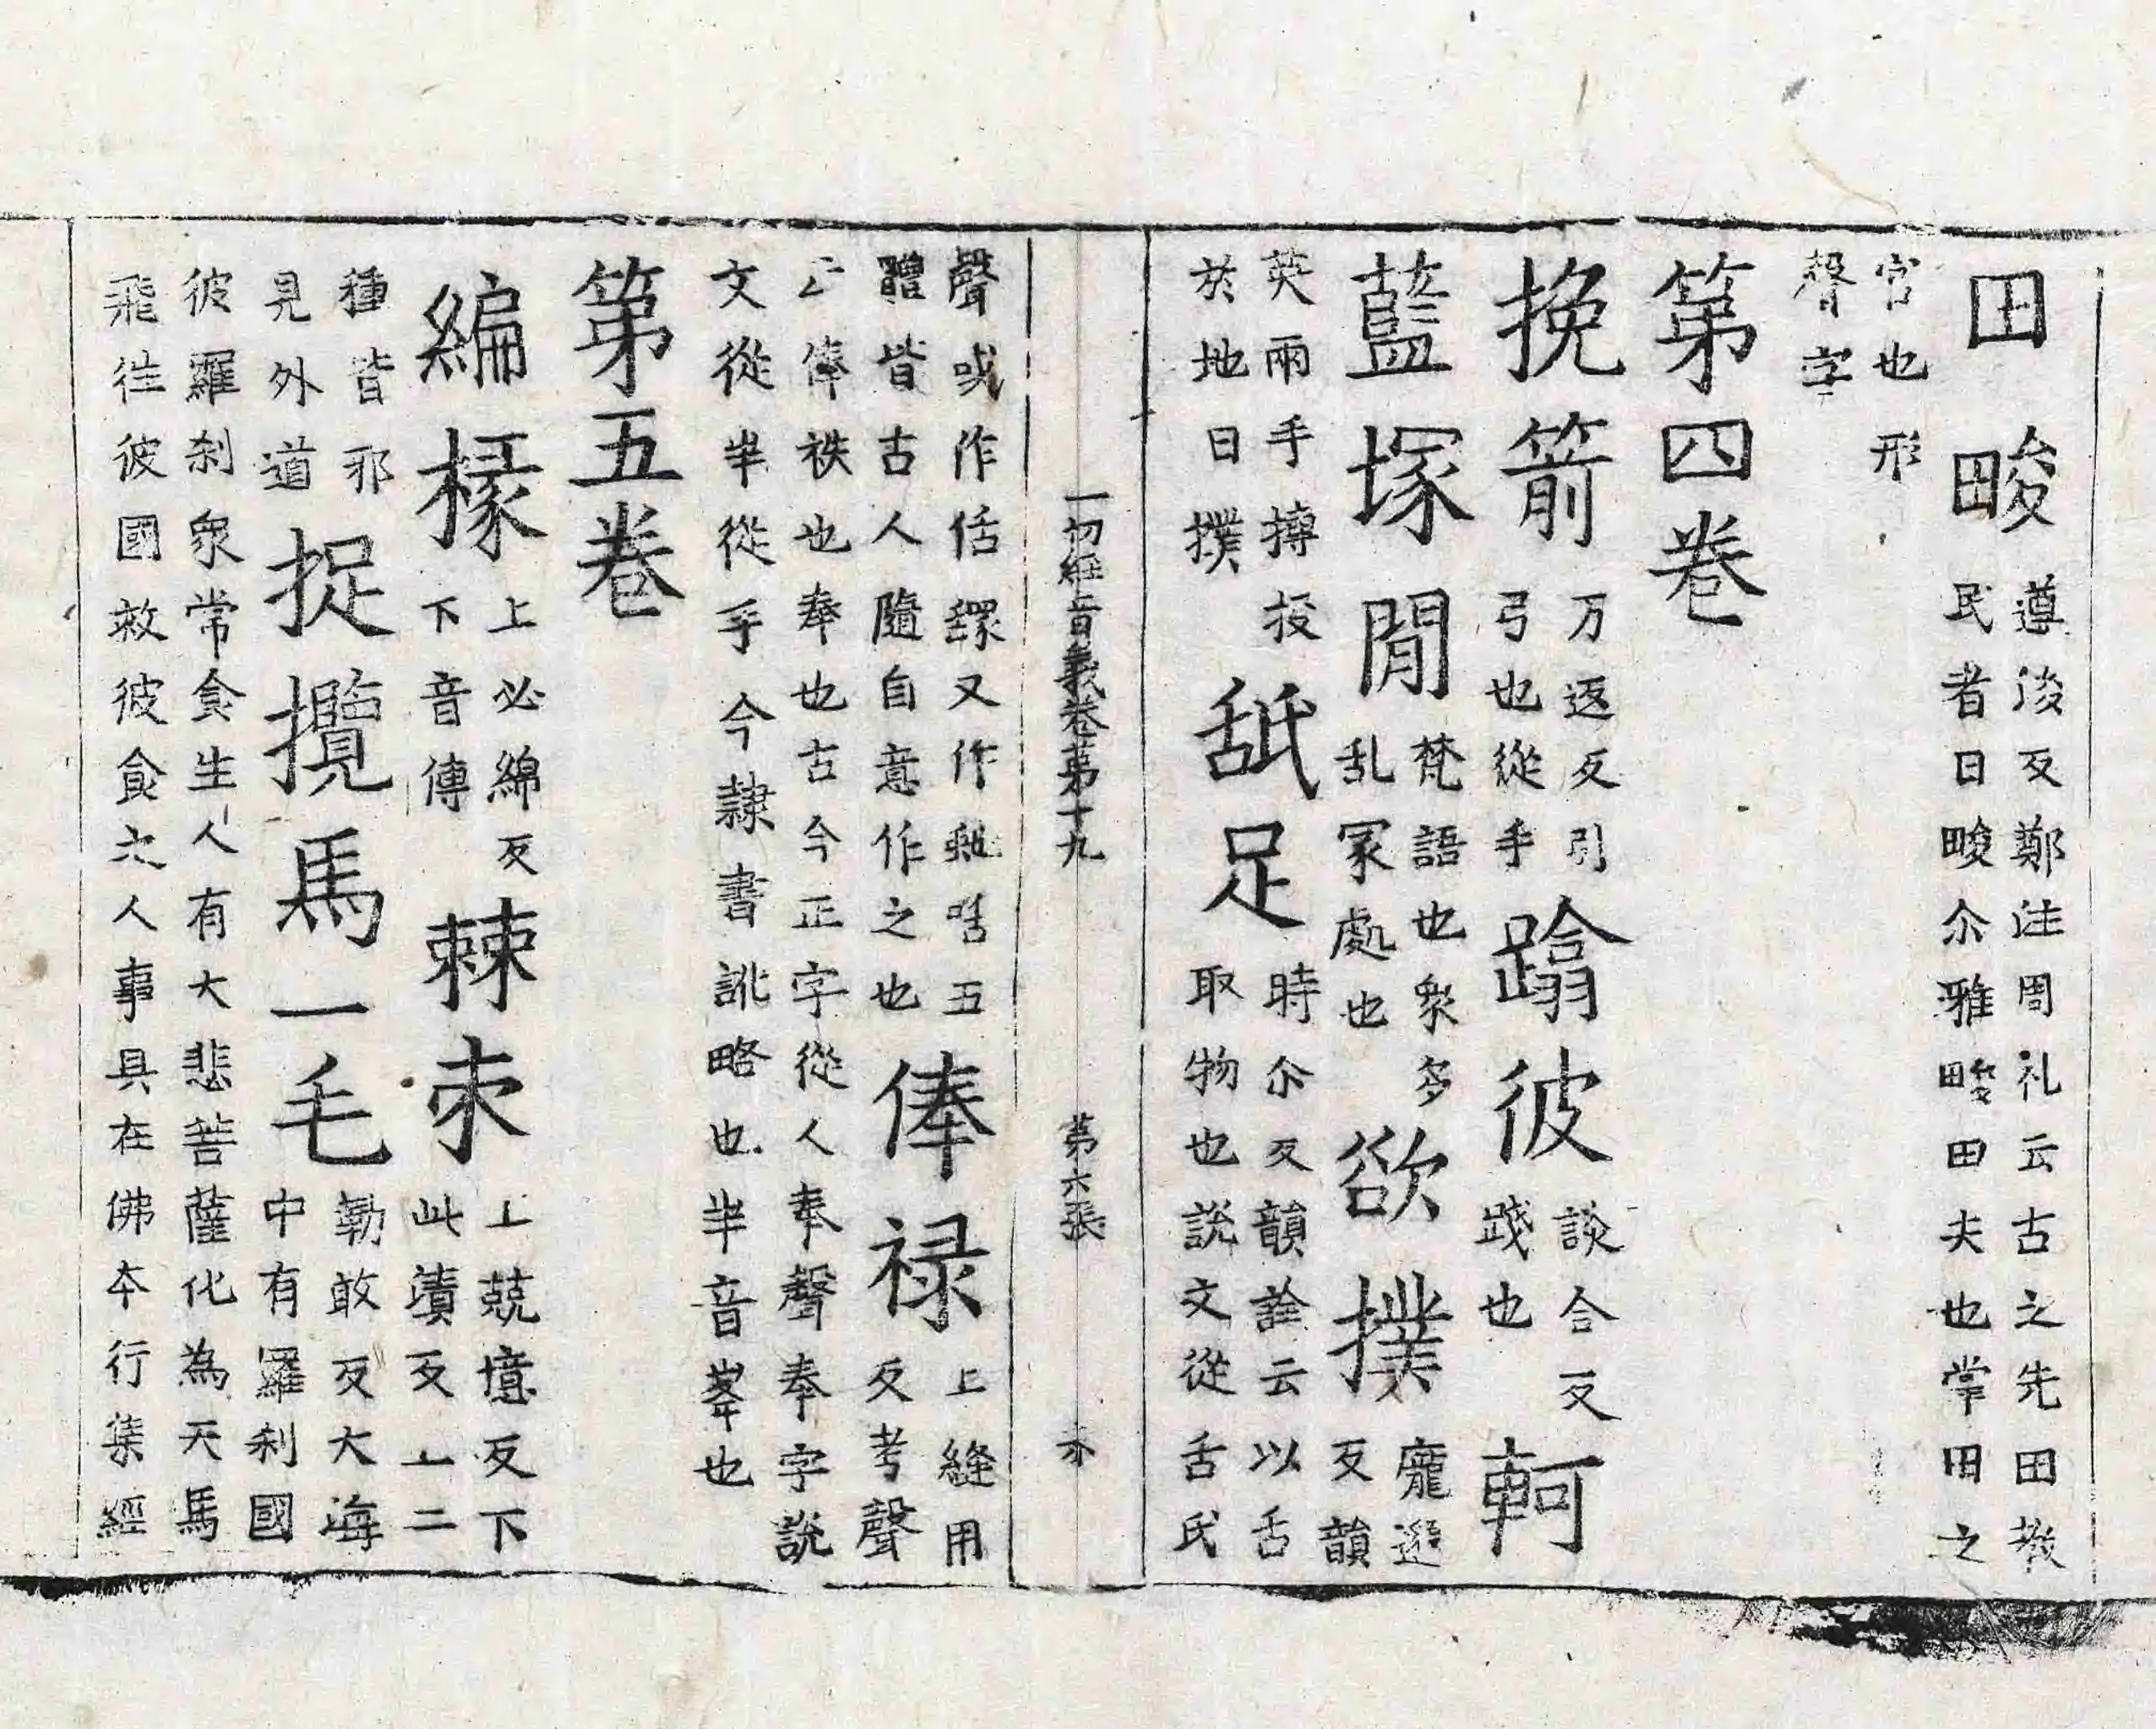 田畯遵浚反鄭注周礼云古之先田教
民者曰畯尒雅畯田夫也掌田之
官也形
聲字
第四卷
挽箭万返反引
弓也從手蹹彼談合反
踐也軻
藍塚間梵語也衆多
乱冢處也欲撲龐邈
反韻
英兩手摶投
於地曰撲舐足時尒反韻詮云以舌
取物也說文從舌氏
一切經音義卷第十九 第六張
聲或作䑛又作五
體皆古人隨自意作之也俸禄上縫用
反考聲
云俸秩也奉也古今正字從人奉聲奉字說
文從半從手今隸書訛略也半音峯也
第五卷
編椽上必綿反
下音傳棘朿上兢憶反下
此漬反上二
種皆邪
見外道捉攬馬一毛勒敢反大海
中有羅刹國
彼羅刹衆常食生人有大悲菩薩化為天馬
飛往彼國救彼食之人事具在佛本行集經